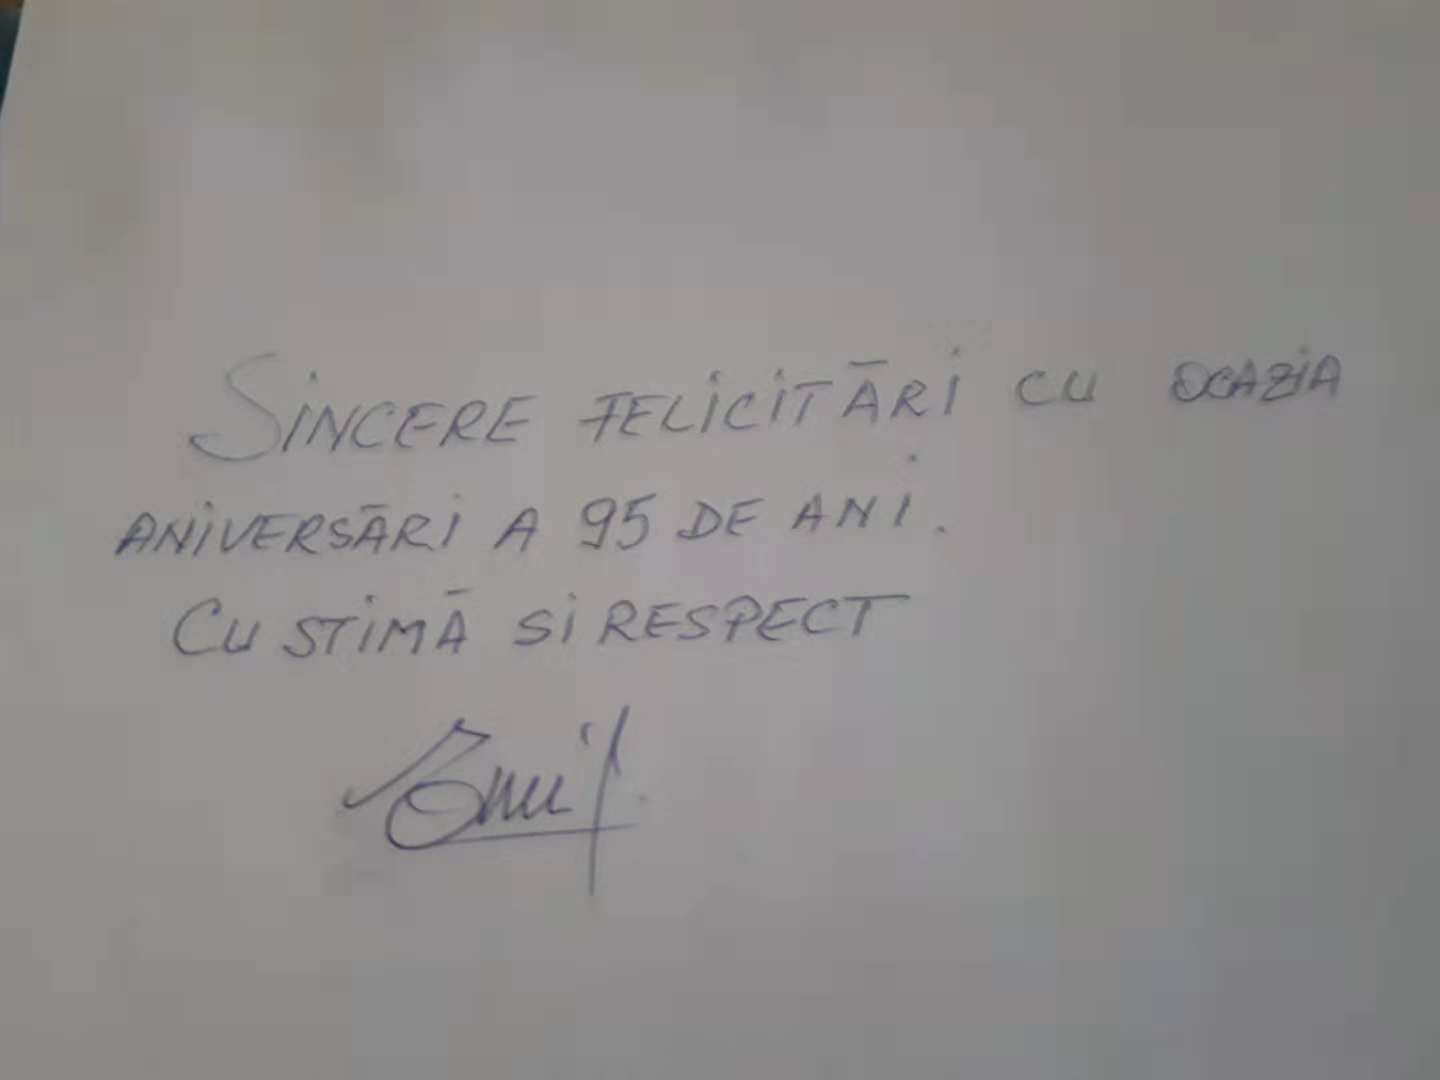 SINCERE FELICITĀRI CU OCAZIA
ANIVERSĀRI A 95 DE ANI.
CU STIMĀ SI RESPECT
Emil